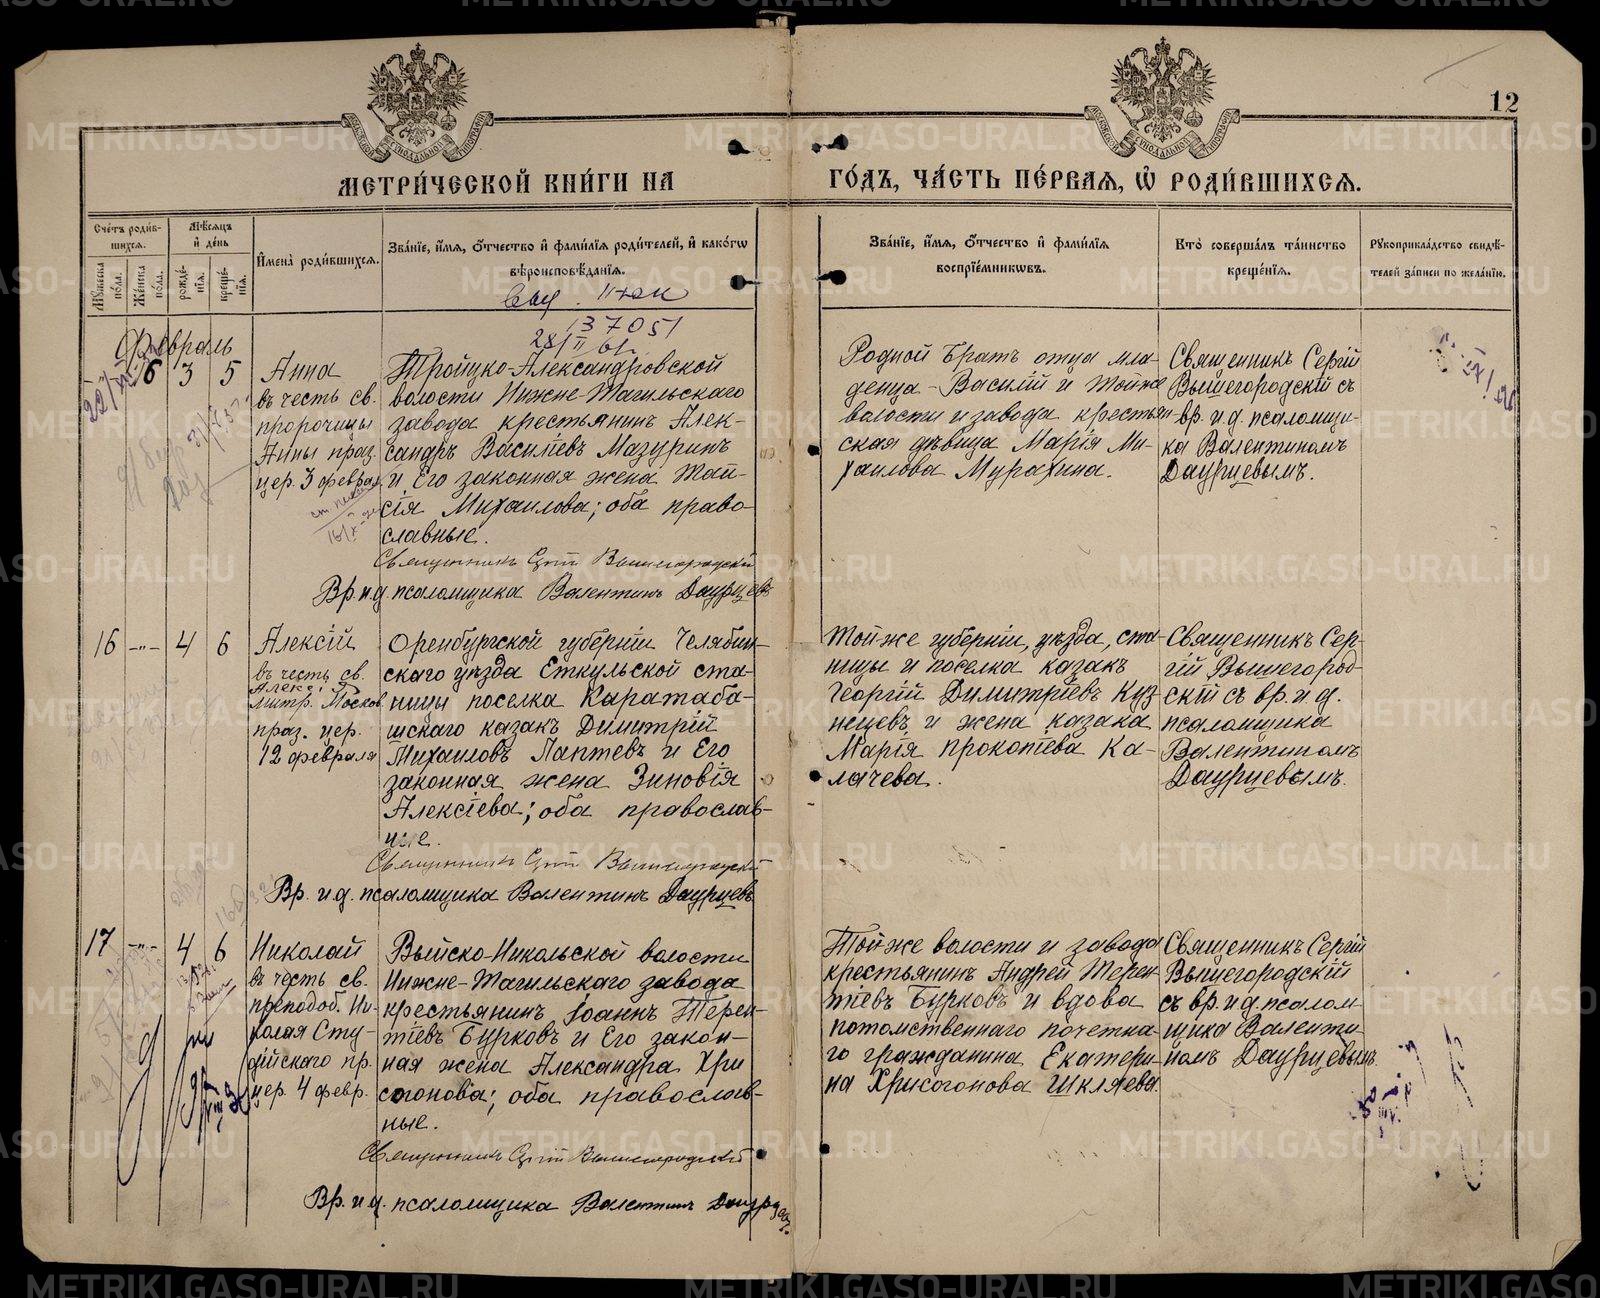 12
МЕТРИ́ЧЕСКОЙ КНИ́ГИ НА ГО́ДЪ, ЧА́СТЬ ПЕ́РВАЯ, Ѡ҆ РОДИ́ВШИХСЯ.
Сче́тъ роди́в-
шихся.
Му́жеска по́ла.
Же́нска по́ла.
Мѣ́сяцъ
и҆ де́нь
рожде́-
нїя.
креще́-
нїя.
И҆мена̀ роди́вшихся.
Зва́нїе, и҆́мя, ѻ҆́тчество и҆ фами́лїя роди́телей, и҆ како́гѡ
вѣроисповѣ́данїя.
Зва́нїе, и҆́мя, ѻ҆́тчество и҆ фами́лїя
воспрїе́мникѡвъ.
Кто̀ соверша́лъ та́инство
креще́нїя.
Рꙋкоприкла́дство свидѣ́-
телей за́писи по жела́нїю.
137051
Февраль
16 3 5
Анна
въ честь св.
пророчицы
Анны праз.
цер. 3 феврал.
Тройцко-Александровской
волости Нижне-Тагильскаго
завода крестьянинъ Алек-
сандръ Васильевъ Мазуринъ
и Его законная жена Таи-
сія Михаилова; оба право-
славные.
Священникъ Сергій Вышегородскій
Вр. и д. псаломщика Валентинъ Даурцевъ
Родной Братъ отца мла-
денца - Василій и Тойже
волости и завода крестьян-
ская дѣвица Марія Ми-
хаилова Мурахина.
Священникъ Сергій
Вышегородскій съ
вр. и д. псаломщи-
ка Валентиномъ
Даурцевымъ.
16 -"- 4 6
Алексій
въ честь св.
Алексі
митр. Москов.
праз. цер.
12 февраля
Оренбургской губерніи Челябин-
скаго уѣзда Еткульской ста-
ницы поселка Каратаба-
шскаго казакъ Димитрій
Михаиловъ Лаптевъ и Его
законная жена Зиновія
Алексіева; оба православ-
ные.
Священникъ Сергій Вышегородскій
Вр. и д. псаломщика Валентинъ Даурцевъ
Тойже губерніи, уѣзда, ста-
ницы и поселка казакъ
Георгій Димитріевъ Куз-
нецевъ и жена казака
Марія Прокопіева Ка-
лачева.
Священникъ Сер-
гій Вышегород-
скій съ вр. и д.
псаломщика
Валентиномъ
Даурцевымъ.
17 -"- 4 6
Николай
въ честь св.
преподоб. Ни-
колая Сту-
дійскаго пр.
цер. 4 февр.
Выйско-Никольской волости
Нижне-Тагильскаго завода
крестьянинъ Іоаннъ Терен-
тіевъ Бурковъ и Его закон-
ная жена Александра Хри
согонова; оба православ-
ные.
Священникъ Сергій Вышегородскій
Вр. и д. псаломщика Валентинъ Даурцевъ
Тойже волости и завода
крестьянинъ Андрей Терен
тіевъ Бурковъ и вдова
потомственнаго почетна-
го гражданина Екатери
на Хрисогонова Шкляева
Священникъ Сергій
Вышегородскій
съ вр. и д. псалом
щика Валенти
номъ Даурцевымъ.
METRIKI.GASO-URAL.RU